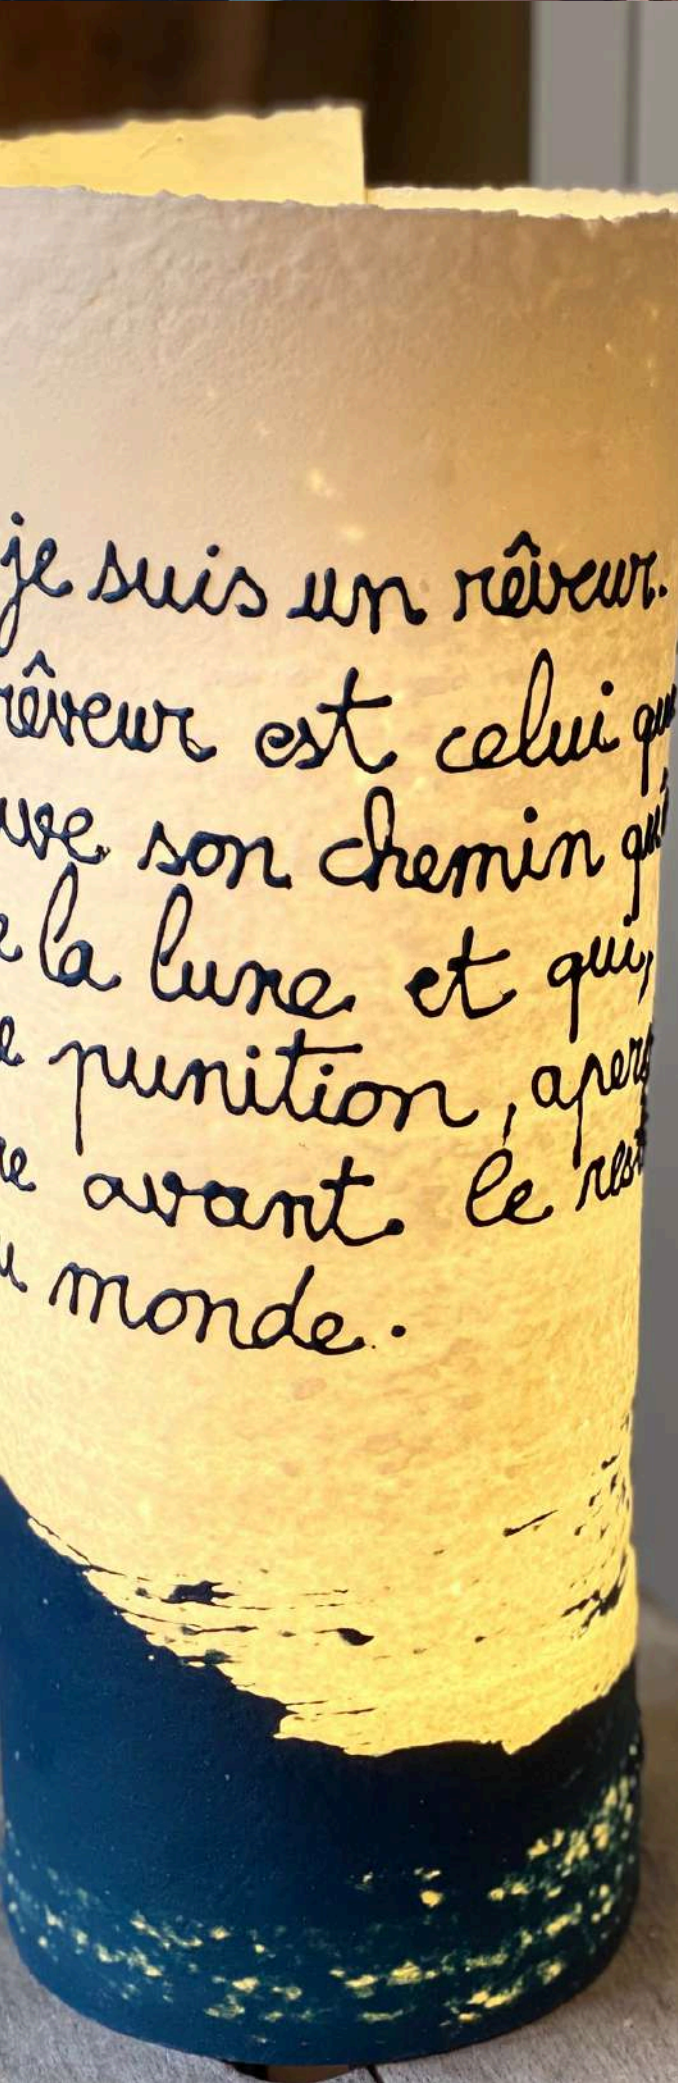 je suis un rêveur.
rêveur est celui qu
uve son chemin qu'à
e la lune et qui,
e punition, aperç
re avant le rest
u monde.